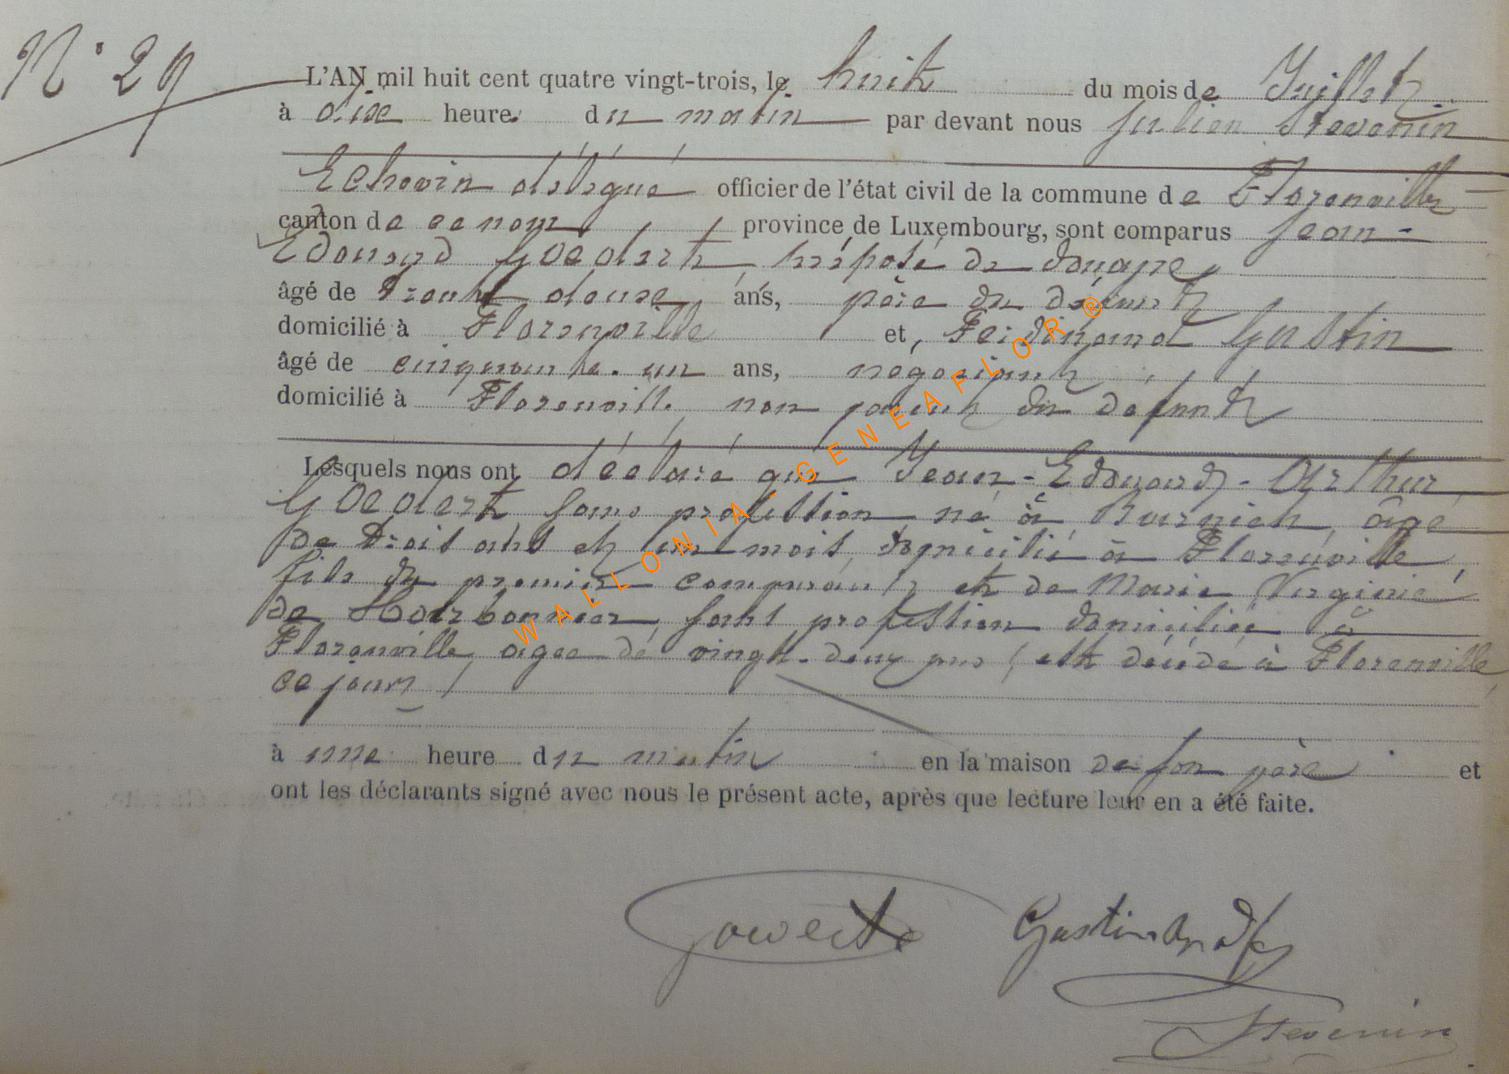 N° 29
L'AN mil huit cent quatre vingt-trois, le huit du mois de Juillet
à dix heures du matin par devant nous Julien Stevenin
Echevin délégué officier de l'état civil de la commune de Florenville
canton de ce nom province de Luxembourg, sont comparus Jean-
Edouard Goedert préposé de douane,
âgé de trente deux ans, père du défunt
domicilié à Florenville et Ferdinand Gustin
âgé de cinquante-un ans, négociant
domicilié à Florenville non parent du défunt
Lesquels nous ont déclaré que Jean-Edouard-Arthur
Goedert sans profession né à Burnich âgé
de trois ans et un mois domicilié à Florenville,
fils du premier comparant et de Marie Virginie
de sans profession domiciliée à
Florenville, agée de vingt-deux ans, est décédé à Florenville
ce jour,
à une heure du matin en la maison de son père et
ont les déclarants signé avec nous le présent acte, après que lecture leur en a été faite.
Gustin
Stevenin
WALLONIA-GENEAFLOR©